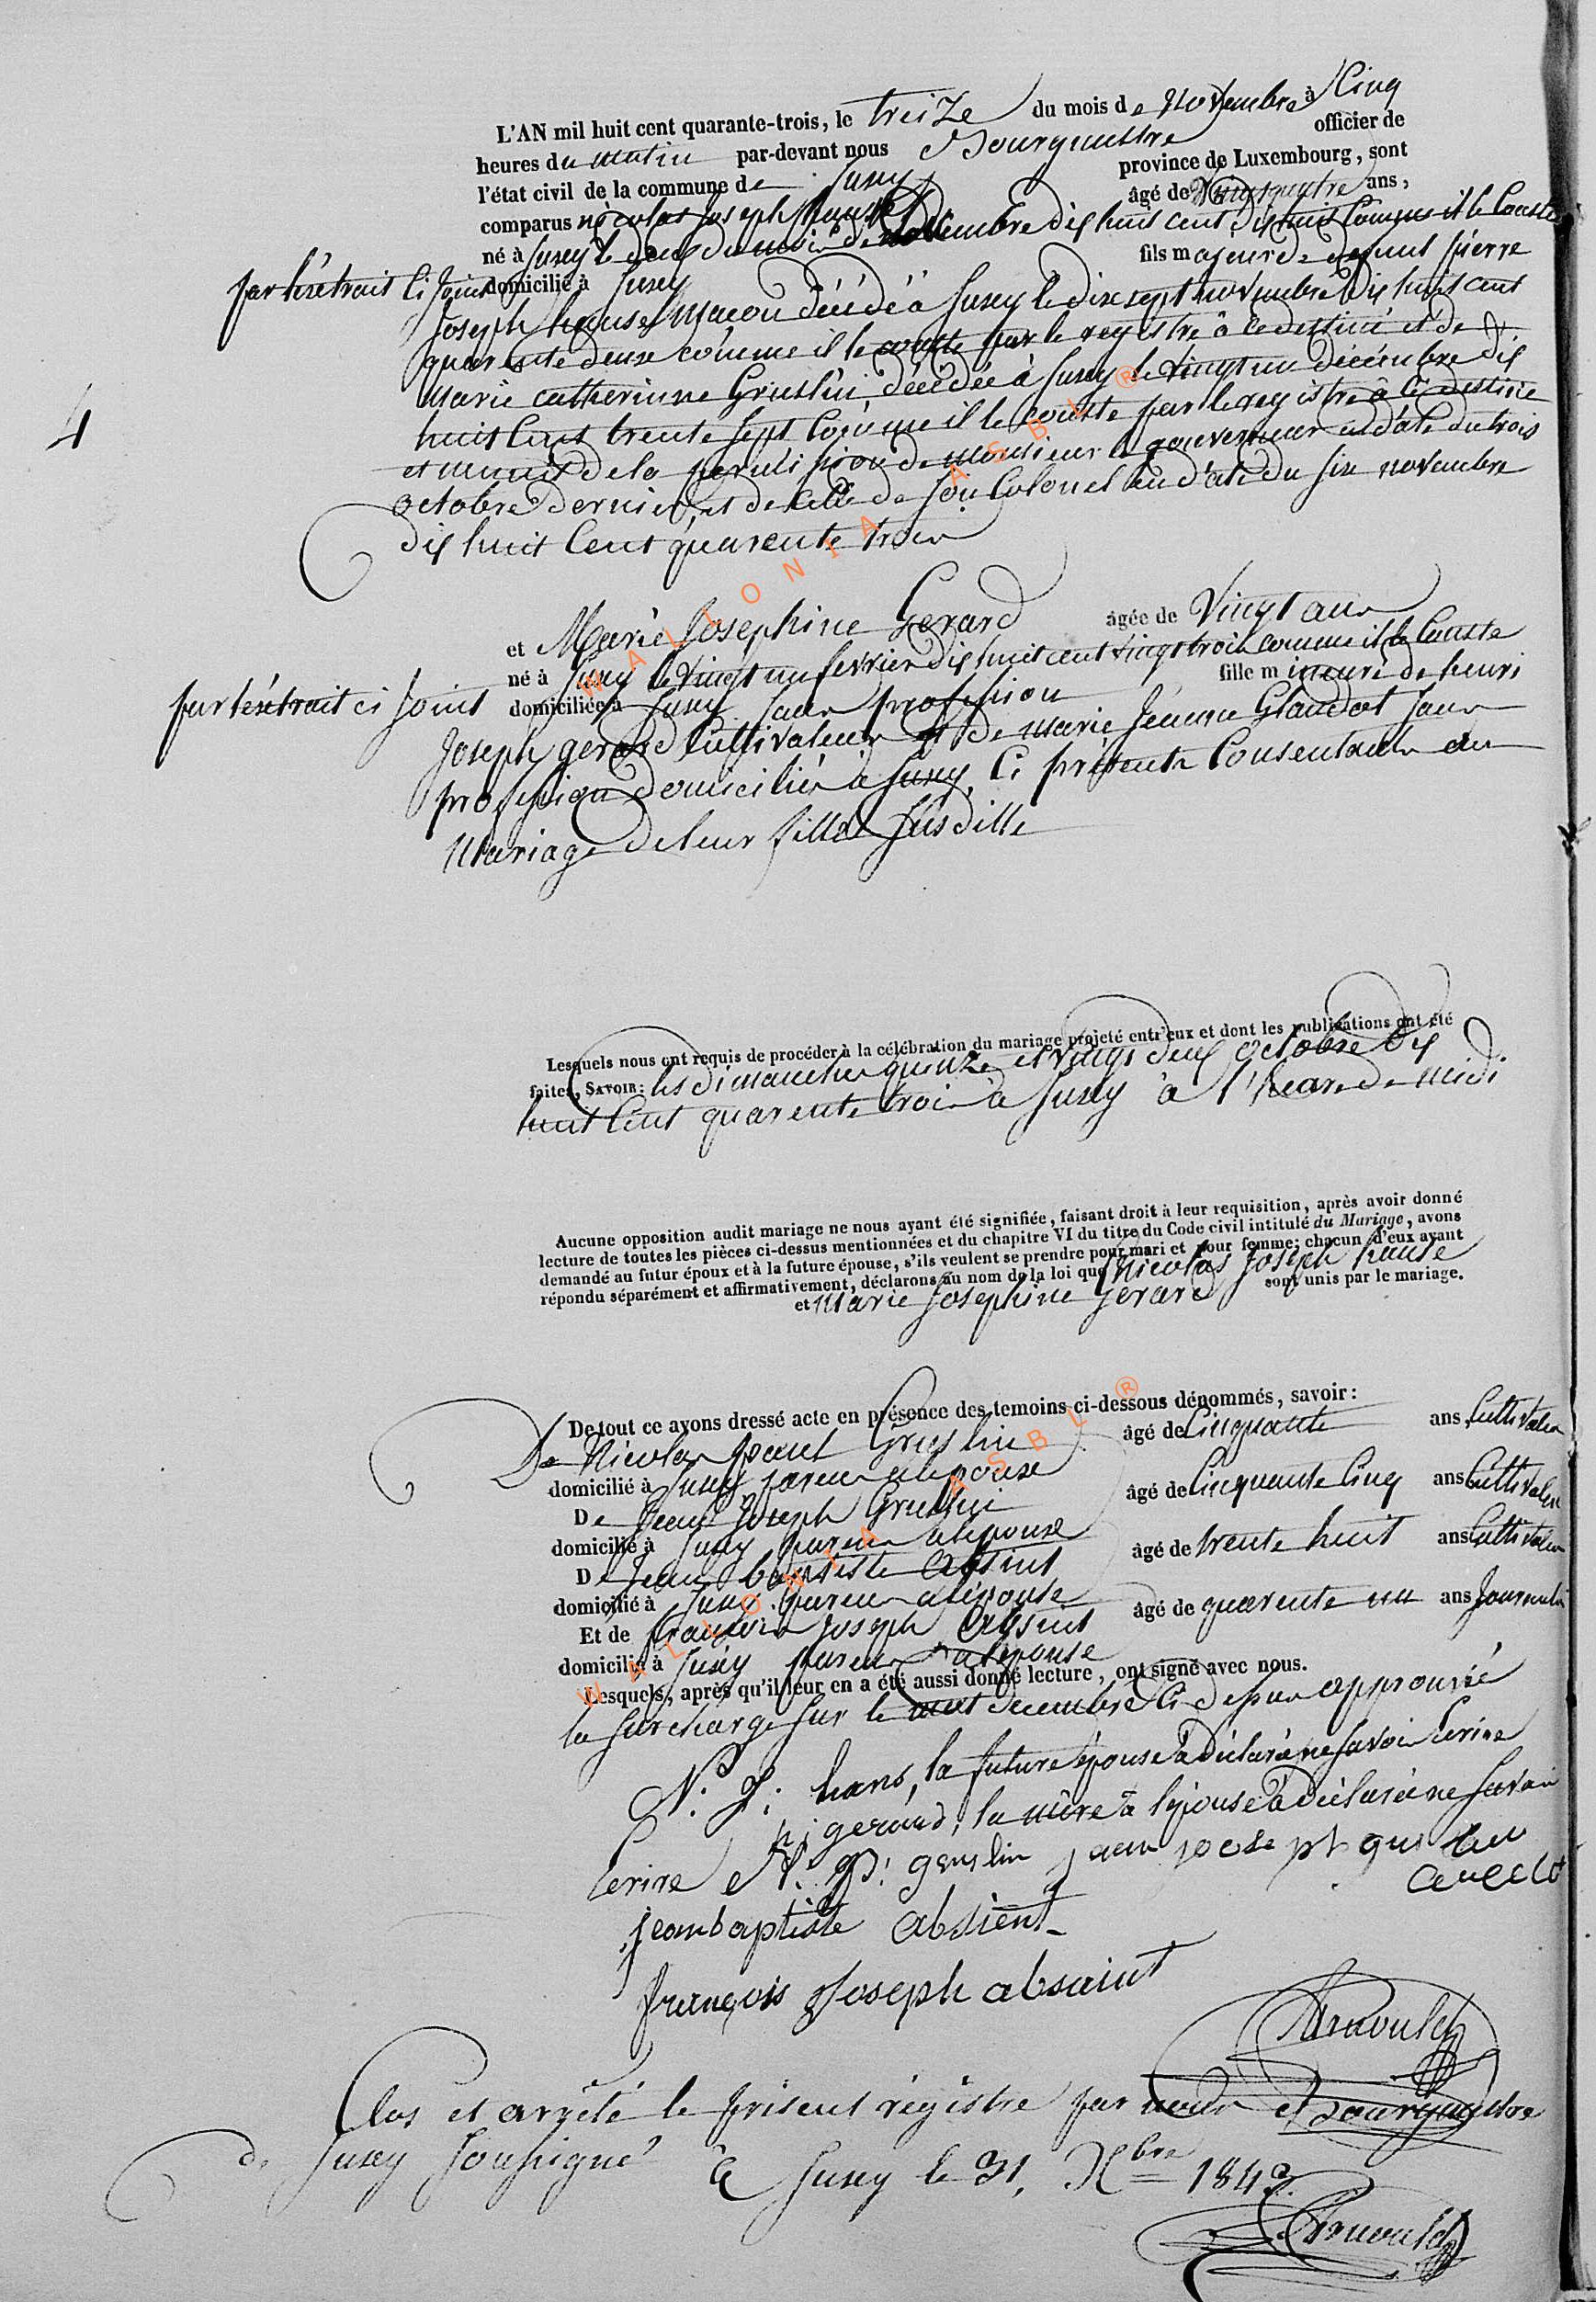 L'AN mil huit cent quarante-trois, le treize du mois de Novembre à Cinq
heures du matin par-devant nous Bourguestre officier de
l'état civil de la commune de Suxy province de Luxembourg, sont
comparus nicolas Joseph hause âgé de Vingt quatre ans,
né à Suxy le deux du mois de décembre dix huit cent dix huit Comme il le Conste
par l'éxtrait ci Joint domicilié à Suxy fils majeur de defunt pierre
Joseph hause Macon décédé à Suxy le dix sept novembre dix huit cent
quarente deux comme il le conste par le registre à ce destiné et de
Marie catherinne Gruslin décédée à Suxy le vingt un décémbre dix
huit Cent trente sept Comme il le conste par le registre à ce destiné
et muni de la permission de monsieur le gouverneur en date du trois
octobre dernier, et de celle de son Colonel en date du six novembre
dix huit Cent quarente trois
et Marie Josephine Gerard âgée de Vingt ans
né à Suxy le vingt un fevrier dix huit cent vingt trois comme il le Conste
par l'éxtrait ci Joint domiciliée à Suxy sans profession fille mineure de henri
Joseph gerard Cultivateur et de marie Jeanne Glaudot sans
profession domiciliés à Suxy, Ci présents Consentants au
Mariage de leur fille susditte
Lesquels nous ont requis de procéder à la célébration du mariage projeté entr'eux et dont les publications ont été
faites, SAVOIR: les dimanches quinze et vingt deux octobre dix
huit Cent quarente trois à Suxy à l'heure de midi
Aucune opposition audit mariage ne nous ayant été signifiée, faisant droit à leur requisition, après avoir donné
lecture de toutes les pièces ci-dessus mentionnées et du chapitre VI du titre du Code civil intitulé du Mariage, avons
demandé au futur époux et à la future épouse, s'ils veulent se prendre pour mari et pour femme; chacun d'eux ayant
répondu séparément et affirmativement, déclarons au nom de la loi que Nicolas Joseph hause
et Marie Josephine Gerard sont unis par le mariage.
De tout ce avons dressé acte en présence des temoins ci-dessous dénommés, savoir:
De Nicolas paul Gruslin âgé de Cinquante ans Cultivateur
domicilié à Suxy parent a l'epouse
De Jean Joseph Gruslin âgé de Cinquante Cinq ans Cultivateur
domicilié à Suxy parent a l'epouse
De Jean baptiste Absint âgé de trente huit ans Cultivateur
domicilié à Suxy parent a l'épouse
Et de francois Joseph Absint âgé de quarente un ans Journalier
domicilié à Suxy parent a l'epouse
Lesquels, après qu'il leur en a été aussi donné lecture, ont signé avec nous.
la surcharge sur le mot decembre Ci dessus approuvée
N. J. hans, la future épouse à déclaré ne savoir Ecrire
h j gerard, la mère à l'epouse à déclaré ne savoir
Ecrire N. P. gruslin jaen joseph
jeanbaptiste absient
françois Joseph absaint
Arnould
Clos et arrêté le présent régistre par nous Bourguestre
de Suxy soussigné à Suxy le 31. Xbre 1843.
Arnould
4
WALLONIA ASBL ®
WALLONIA ASBL ®